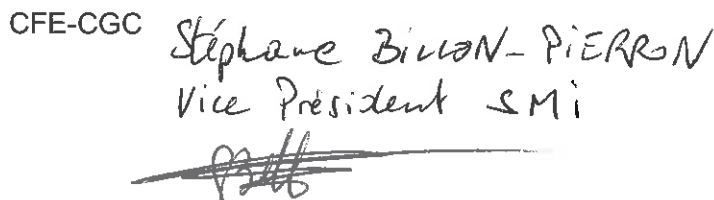 CFE-CGC Stéphane BILLON-PIERRON
Vice Président SMI